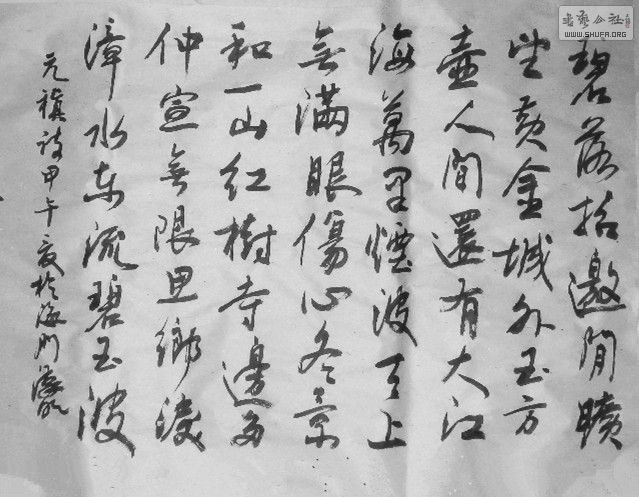 碧落招邀閒曠
望黃金城外玉方
壺人間還有大江
海萬里煙波天上
無滿眼傷心冬景
和一山紅樹寺邊多
仲宣無限思鄉淚
漳水东流碧玉波
元稹詩甲午夏於海門
书法公社
WWW.SHUFA.ORG